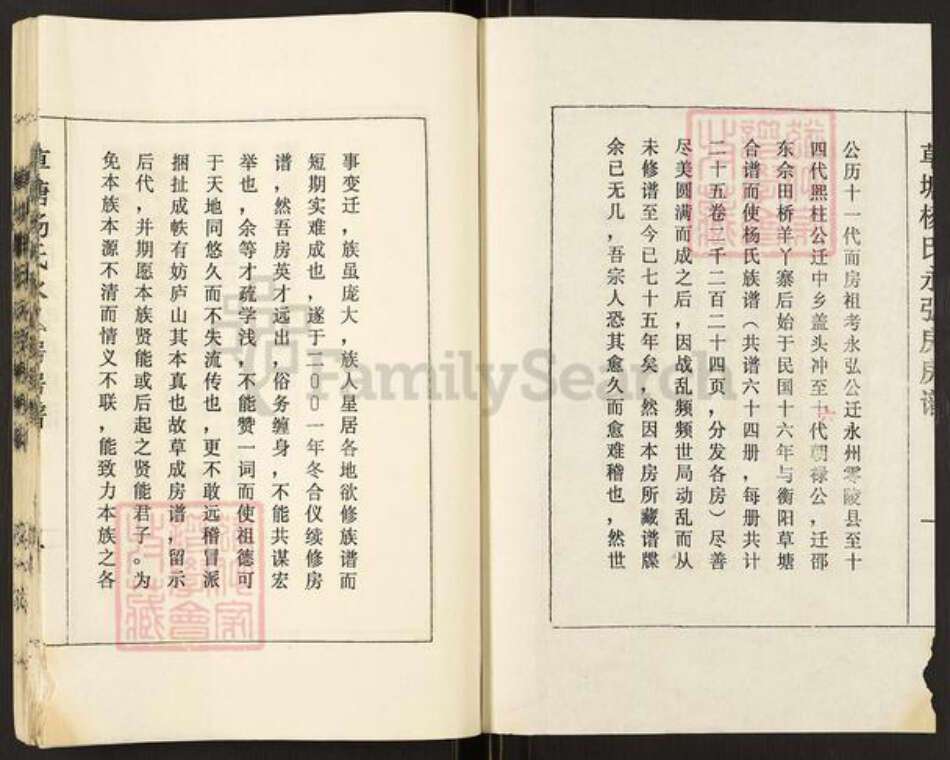 公历十一代而房祖考永弘公迁永州零陵县至十
四代熙柱公迁中乡盖头冲至十代朝禄公，迁邵
东佘田桥羊丫寨后始于民国十六年与衡阳草塘
合谱而使杨氏族谱（共谱六十四册，每册共计
二十五卷二千二百二十四页，分发各房）尽善
尽美圆满而成之后，因战乱频频世局动乱而从
未修谱至今已七十五年矣，然因本房所藏谱牒
余已无几，吾宗人恐其愈久而愈难稽也，然世
草塘杨氏永弘房房谱
一
事变迁，族虽庞大，族人星居各地欲修族谱而
短期实难成也，遂于二00一年冬合仪续修房
谱，然吾房英才远出，俗务缠身，不能共谋宏
举也，余等才疏学浅，不能赞一词而使祖德可
于天地同悠久而不失流传也，更不敢远稽冒派
捆扯成帙有妨庐山其本真也故草成房谱，留示
后代，并期愿本族贤能或后起之贤能君子。为
免本族本源不清而情义不联，能致力本族之各
草塘杨氏永 房房谱
FamilySearch